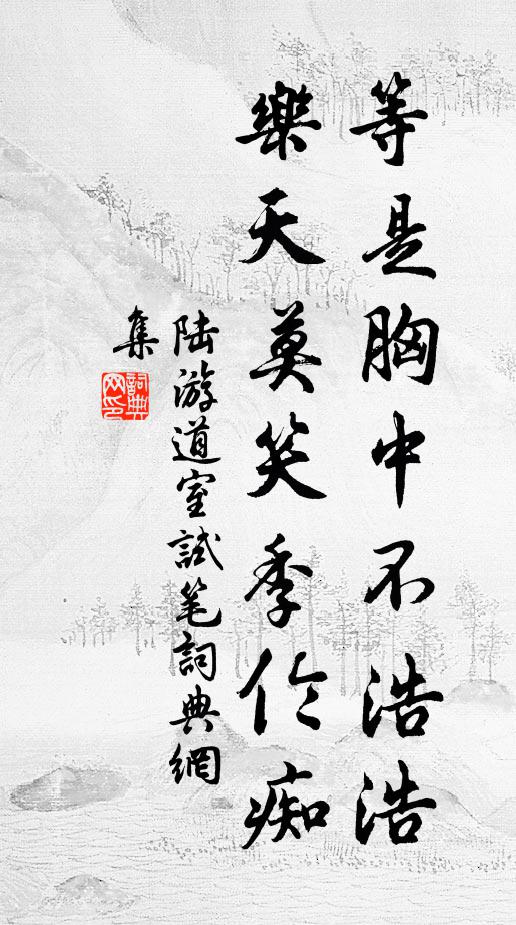 等是胸中不浩浩
樂天莫笑季伦痴
陆游道室試笔詞典網
集
詞典网印